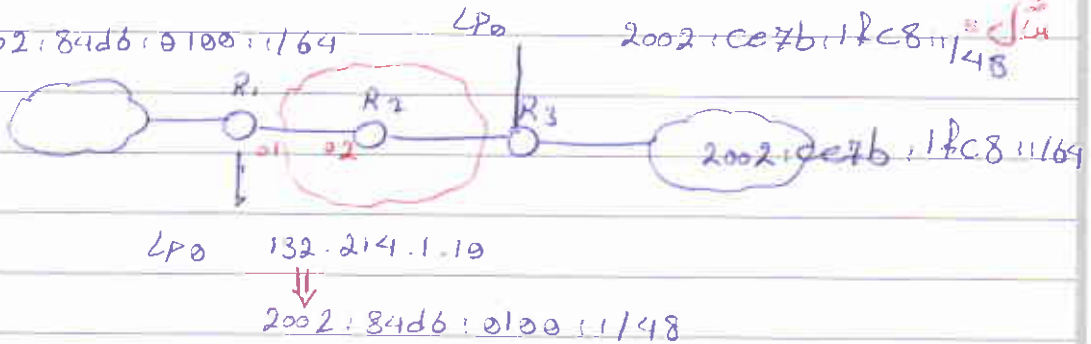 02:84d6:0100::/64
LP0
2002:ce7b:1fc8::/48
مثال
R1
R2
R3
01
02
2002:ce7b:1fc8::/64
LP0 132.214.1.10
2002:84d6:0100::/48